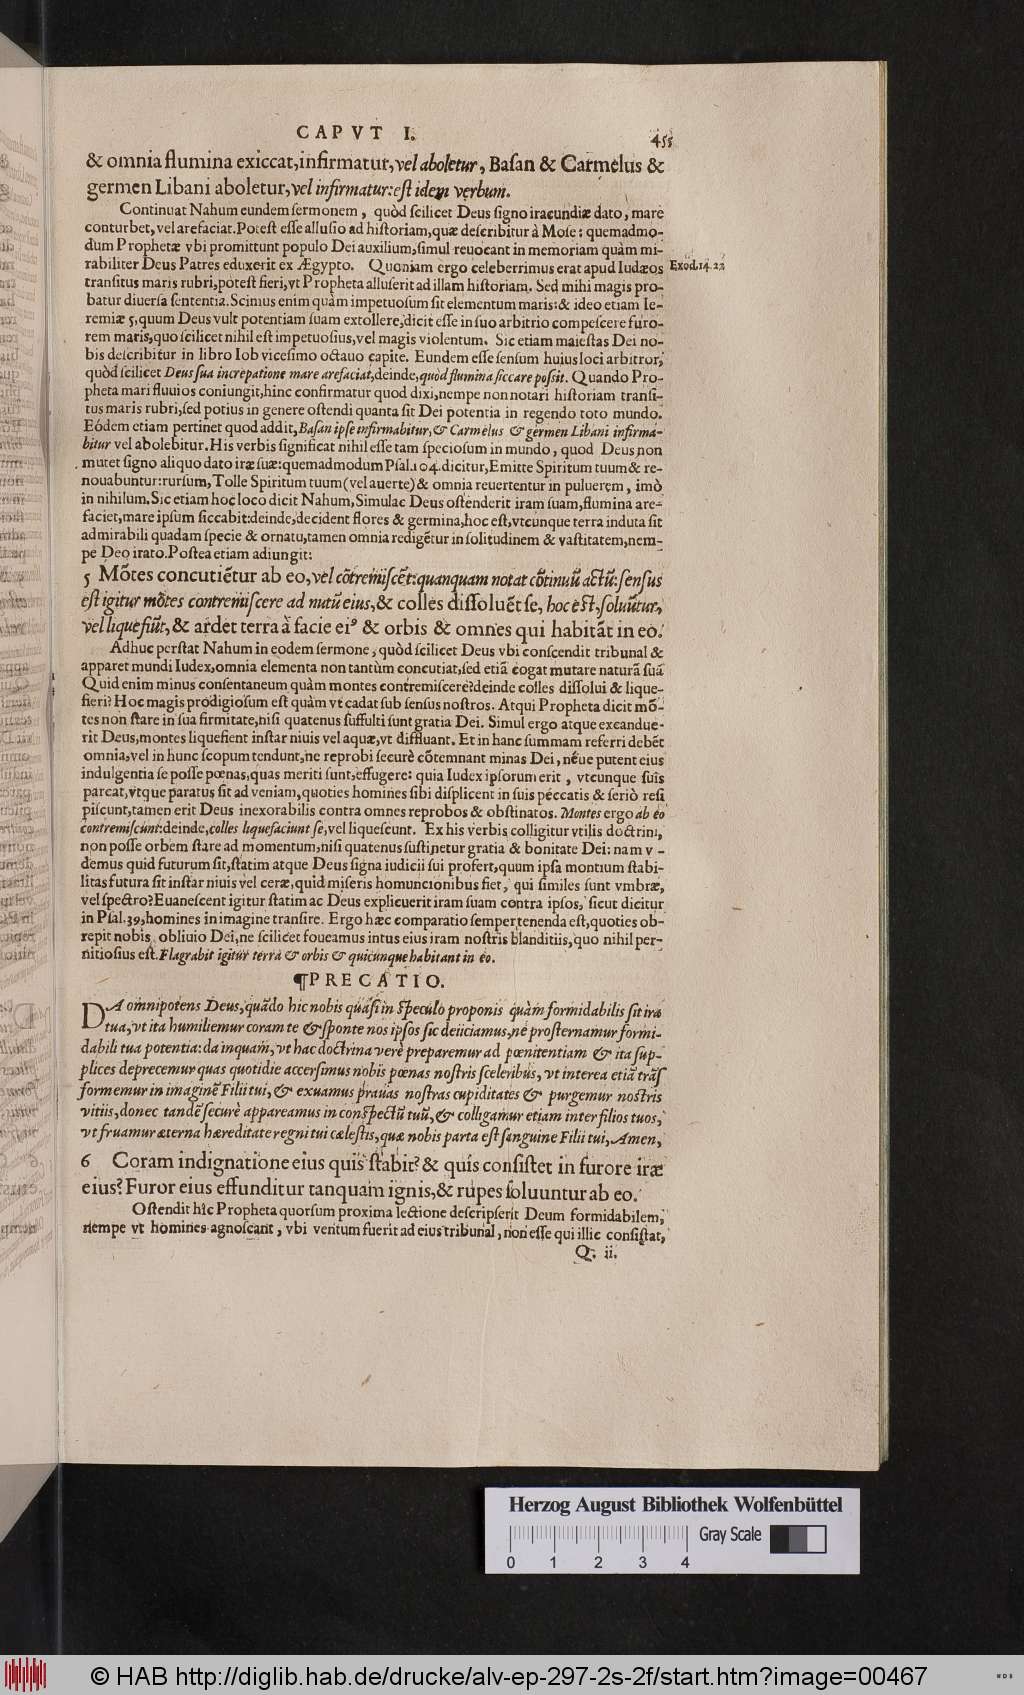 CAPVT I.
455
& omnia flumina exiccat, infirmatur, vel aboletur, Baſan & Carmelus &
germen Libani aboletur, vel infirmatur: eſt idem verbum.
Continuat Nahum eundem ſermonem, quòd ſcilicet Deus ſigno iracundiæ dato, mare
conturbet, vel arefaciat. Poteſt eſſe alluſio ad hiſtoriam, quæ deſcribitur à Moſe: quemadmo-
dum Prophetæ vbi promittunt populo Dei auxilium, ſimul reuocant in memoriam quàm mi-
rabiliter Deus Patres eduxerit ex Ægypto. Quoniam ergo celeberrimus erat apud Iudæos
Exod. 14. 22
tranſitus maris rubri, poteſt fieri, vt Propheta alluſerit ad illam hiſtoriam. Sed mihi magis pro-
batur diuerſa ſententia. Scimus enim quàm impetuoſum ſit elementum maris: & ideo etiam Ie-
remiæ 5, quum Deus vult potentiam ſuam extollere, dicit eſſe in ſuo arbitrio compeſcere furo-
rem maris, quo ſcilicet nihil eſt impetuoſius, vel magis violentum. Sic etiam maieſtas Dei no-
bis deſcribitur in libro Iob viceſimo octauo capite. Eundem eſſe ſenſum huius loci arbitror,
quòd ſcilicet Deus ſua increpatione mare arefaciat, deinde, quòd flumina ſiccare poſſit. Quando Pro-
pheta mari fluuios coniungit, hinc confirmatur quod dixi, nempe non notari hiſtoriam tranſi-
tus maris rubri, ſed potius in genere oſtendi quanta ſit Dei potentia in regendo toto mundo.
Eódem etiam pertinet quod addit, Baſan ipſe infirmabitur, & Carmelus & germen Libani infirma-
bitur vel abolebitur. His verbis ſignificat nihil eſſe tam ſpecioſum in mundo, quod Deus non
mutet ſigno aliquo dato iræ ſuæ: quemadmodum Pſal. 104. dicitur, Emitte Spiritum tuum & re-
nouabuntur: rurſum, Tolle Spiritum tuum (vel auerte) & omnia reuertentur in puluerem, imò
in nihilum. Sic etiam hoc loco dicit Nahum, Simulac Deus oſtenderit iram ſuam, flumina are-
faciet, mare ipſum ſiccabit: deinde, decident flores & germina, hoc eſt, vtcunque terra induta ſit
admirabili quadam ſpecie & ornatu, tamen omnia redigẽtur in ſolitudinem & vaſtitatem, nem-
pe Deo irato. Poſtea etiam adiungit:
5 Mõtes concutiẽtur ab eo, vel cõtremiſcẽt: quanquam notat cõtinuũ actũ: ſenſus
eſt igitur mõtes contremiſcere ad nutũ eius, & colles diſſoluẽt ſe, hoc eſt, ſoluũtur,
vel liquefiũt, & ardet terra à facie eiꝰ & orbis & omnes qui habitãt in eo.
Adhuc perſtat Nahum in eodem ſermone, quòd ſcilicet Deus vbi conſcendit tribunal &
apparet mundi Iudex, omnia elementa non tantùm concutiat, ſed etiã cogat mutare naturã ſuã
Quid enim minus conſentaneum quàm montes contremiſcere? deinde colles diſſolui & lique-
fieri? Hoc magis prodigioſum eſt quàm vt cadat ſub ſenſus noſtros. Atqui Propheta dicit mõ-
tes non ſtare in ſua firmitate, niſi quatenus ſuffulti ſunt gratia Dei. Simul ergo atque excandue-
rit Deus, montes liquefient inſtar niuis vel aquæ, vt diffluant. Et in hanc ſummam referri debẽt
omnia, vel in hunc ſcopum tendunt, ne reprobi ſecurè cõtemnant minas Dei, néue putent eius
indulgentia ſe poſſe pœnas, quas meriti ſunt, effugere: quia Iudex ipſorum erit, vtcunque ſuis
parcat, vtque paratus ſit ad veniam, quoties homines ſibi diſplicent in ſuis peccatis & ſeriò reſi
piſcunt, tamen erit Deus inexorabilis contra omnes reprobos & obſtinatos. Montes ergo ab eo
contremiſcunt: deinde, colles liquefaciunt ſe, vel liqueſcunt. Ex his verbis colligitur vtilis doctrina,
non poſſe orbem ſtare ad momentum, niſi quatenus ſuſtinetur gratia & bonitate Dei: nam v-
demus quid futurum ſit, ſtatim atque Deus ſigna iudicii ſui profert, quum ipſa montium ſtabi-
litas futura ſit inſtar niuis vel ceræ, quid miſeris homuncionibus fiet, qui ſimiles ſunt vmbræ,
vel ſpectro? Euaneſcent igitur ſtatim ac Deus explicuerit iram ſuam contra ipſos, ſicut dicitur
in Pſal. 39, homines in imagine tranſire. Ergo hæc comparatio ſemper tenenda eſt, quoties ob-
repit nobis obliuio Dei, ne ſcilicet foueamus intus eius iram noſtris blanditiis, quo nihil per-
nitioſius eſt. Flagrabit igitur terra & orbis & quicunque habitant in eo.
¶PRECATIO.
DA omnipotens Deus, quãdo hic nobis quaſi in ſpeculo proponis quàm formidabilis ſit ira
tua, vt ita humiliemur coram te & ſponte nos ipſos ſic deiiciamus, ne proſternamur formi-
dabili tua potentia: da inquam, vt hac doctrina verè preparemur ad pœnitentiam & ita ſup-
plices deprecemur quas quotidie accerſimus nobis pœnas noſtris ſceleribus, vt interea etiã trãſ
formemur in imaginẽ Filii tui, & exuamus prauas noſtras cupiditates & purgemur noſtris
vitiis, donec tandẽ ſecurè appareamus in conſpectũ tuũ, & colligamur etiam inter filios tuos,
vt fruamur æterna hæreditate regni tui cæleſtis, quæ nobis parta eſt ſanguine Filii tui, Amen,
6 Coram indignatione eius quis ſtabit? & quis conſiſtet in furore iræ
eius? Furor eius effunditur tanquam ignis, & rupes ſoluuntur ab eo.
Oſtendit hîc Propheta quorſum proxima lectione deſcripſerit Deum formidabilem,
nempe vt homines agnoſcant, vbi ventum fuerit ad eius tribunal, non eſſe qui illic conſiſtat,
Q. ii.
Herzog August Bibliothek Wolfenbüttel
Gray Scale
0 1 2 3 4
© HAB http://diglib.hab.de/drucke/alv-ep-297-2s-2f/start.htm?image=00467
WDB